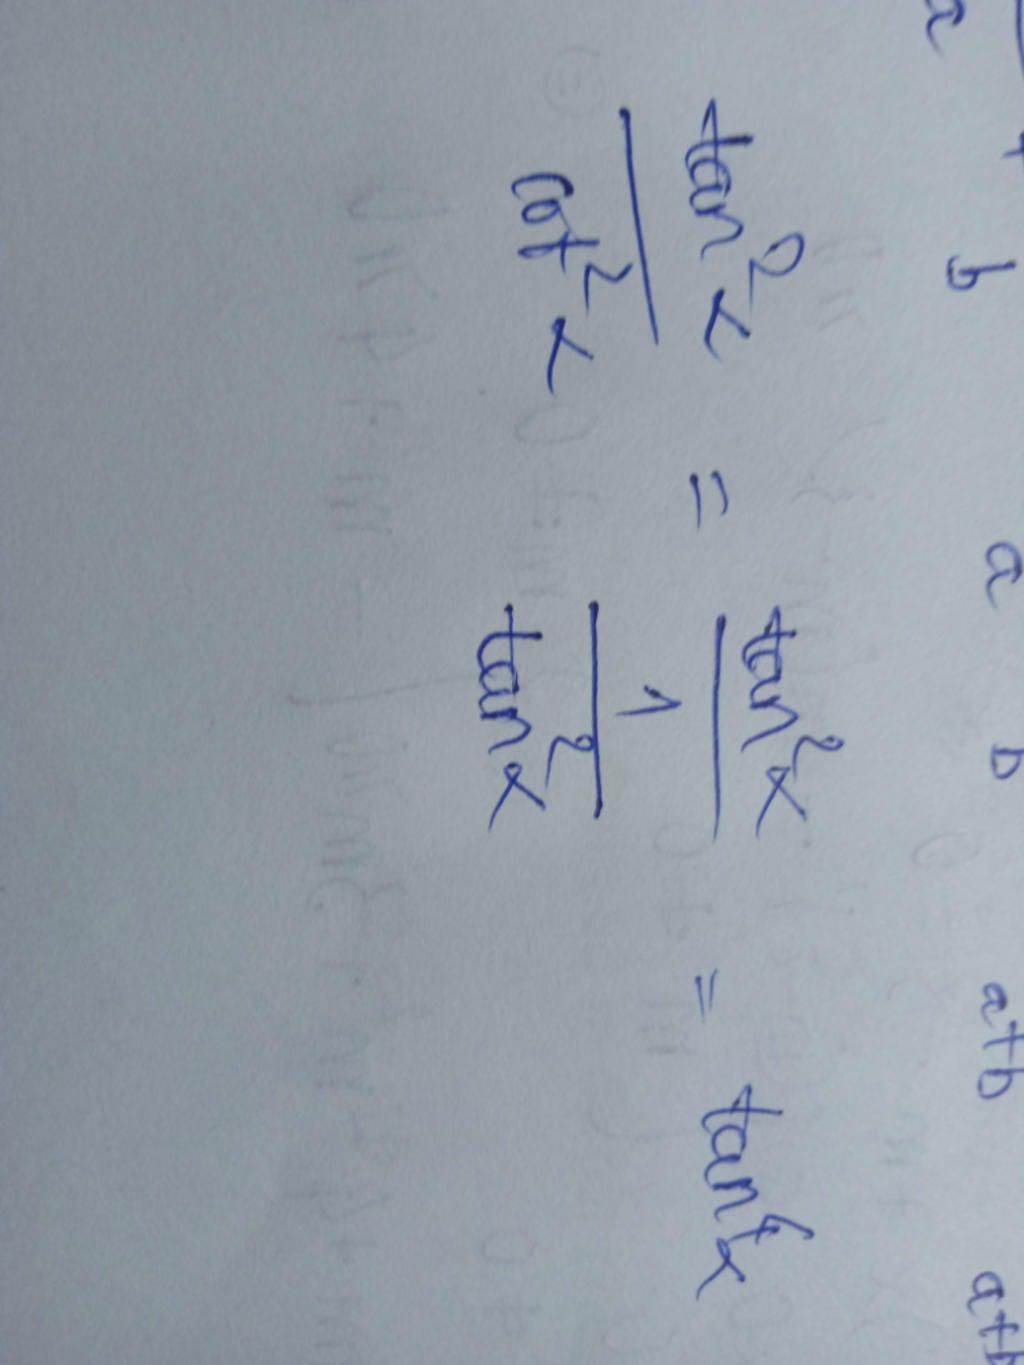 x b a b a+b a+b
tan²x / cot²x = tan²x / (1 / tan²x) = tan⁴x